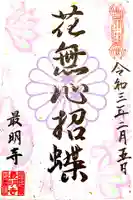 令和三年二月五日
花無心招蝶
最明寺